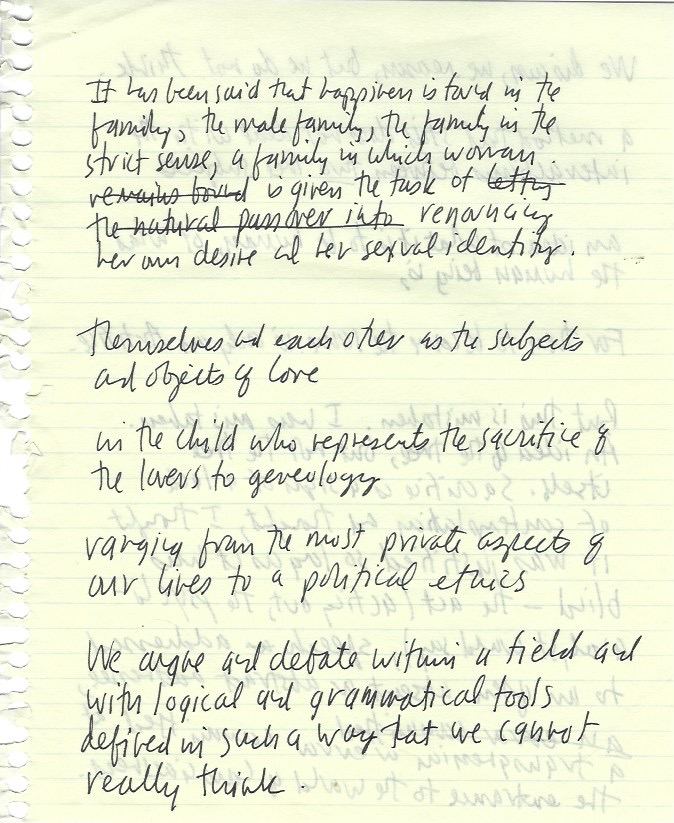 It has been said that happiness is found in the
family, the male family, the family in the
strict sense, a family in which woman
remains bound is given the task of letting
the natural pass over into renouncing
her own desire and her sexual identity.
themselves and each other as the subjects
and objects of love
in the child who represents the sacrifice of
the lovers to geneology
ranging from the most private aspects of
our lives to a political ethics
We argue and debate within a field and
with logical and grammatical tools
defined in such a way that we cannot
really think.